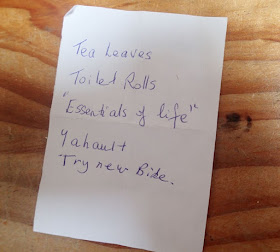 Tea Leaves
Toilet Rolls
"Essentials of life"
Yahault
Try new Bide.